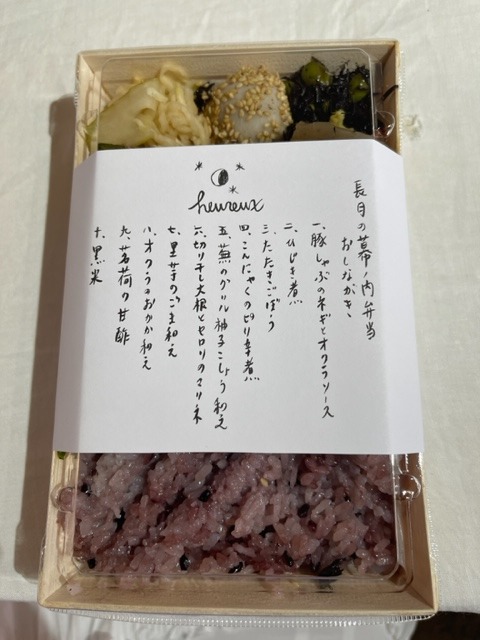 heureux
長月の幕ノ内弁当
おしながき、
一、豚しゃぶのネギとオクラソース
二、ひじき煮
三、たたきごぼう
四、こんにゃくのピリ辛煮
五、蕪のグリル柚子こしょう和え
六、切り干し大根とセロリのマリネ
七、里芋のごま和え
八、オクラのおかか和え
九、茗荷の甘酢
十、黒米